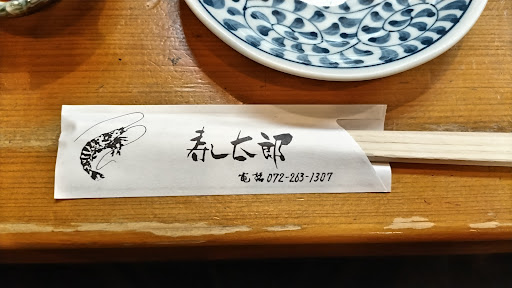 寿し太郎
電話 072-263-1307